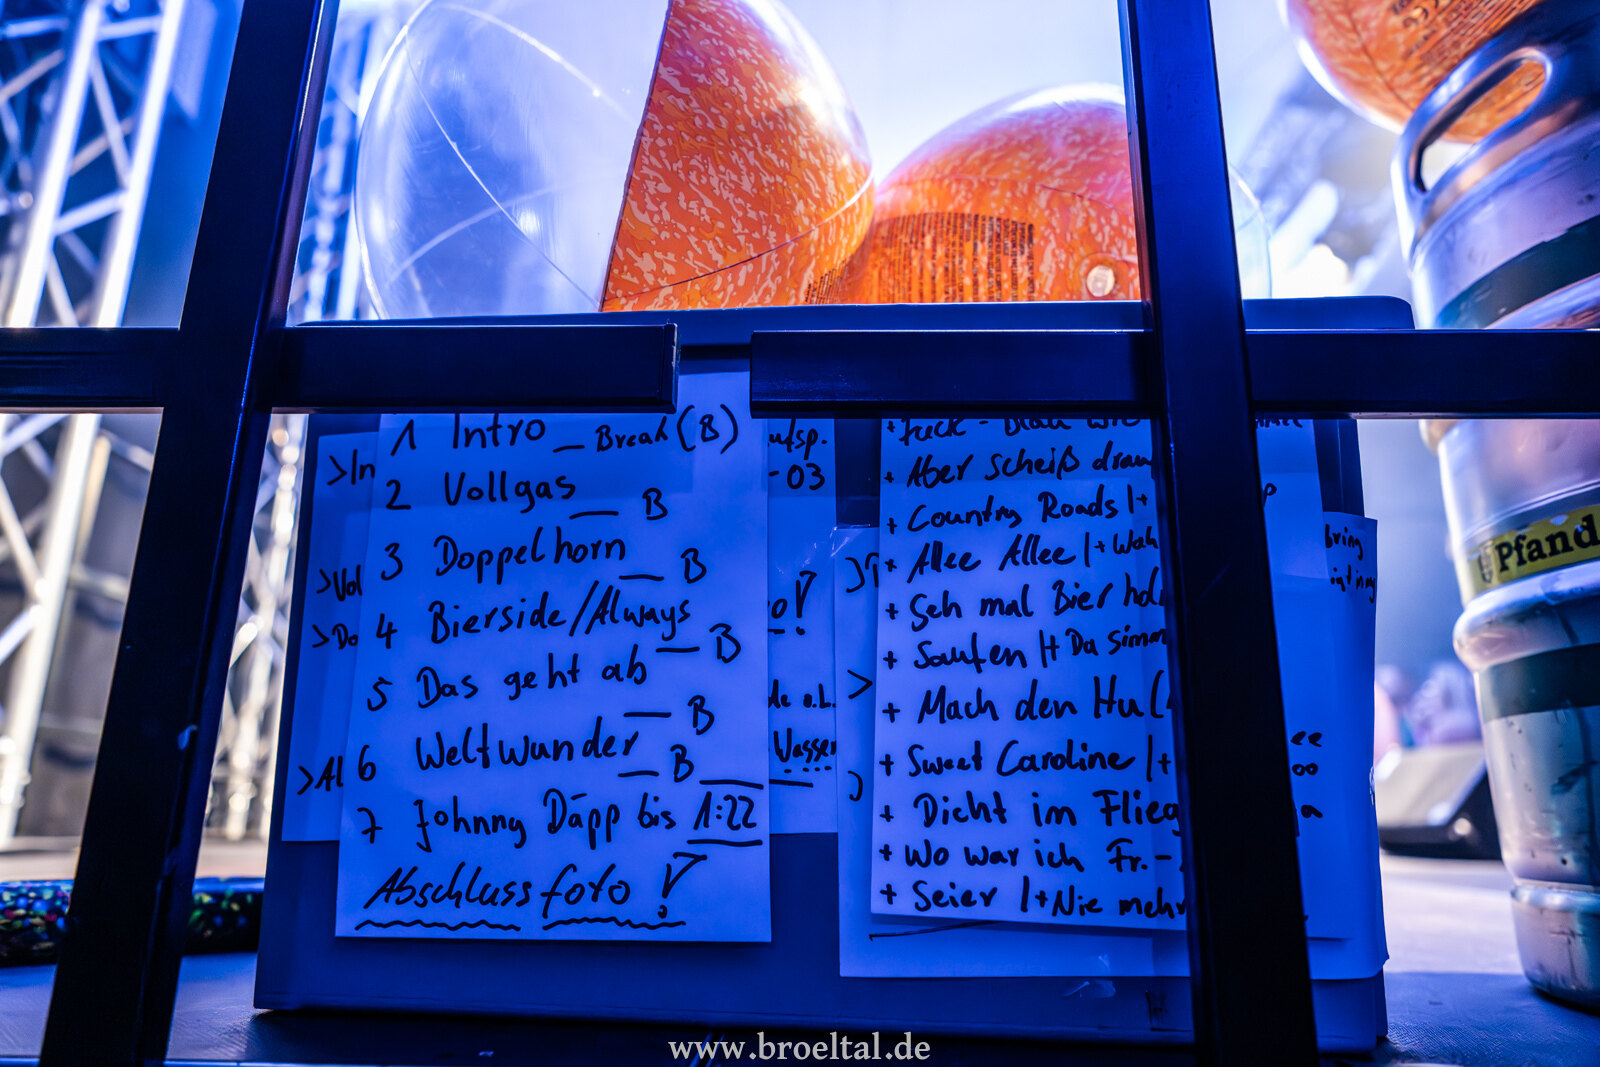 1 Intro — Break (B)
2 Vollgas — B
3 Doppelhorn — B
4 Bierside/Always — B
5 Das geht ab — B
6 Weltwunder — B
7 Johnny Däpp bis 1:22
Abschlussfoto !
>In
>Vol
>Do
>Al
ufsp.
-03
o!
de o.L.
Wasser
+ Fuck -
+ Aber scheiß drau
+ Country Roads |+
+ Allee Allee |+ Wah
+ Geh mal Bier hol
+ Saufen |+ Da simm
+ Mach den Hu
+ Sweet Caroline |+
+ Dicht im Flieg
+ Wo war ich Fr.-
+ Seier |+ Nie mehr
bring
ee
oo
a
Pfand
www.broeltal.de